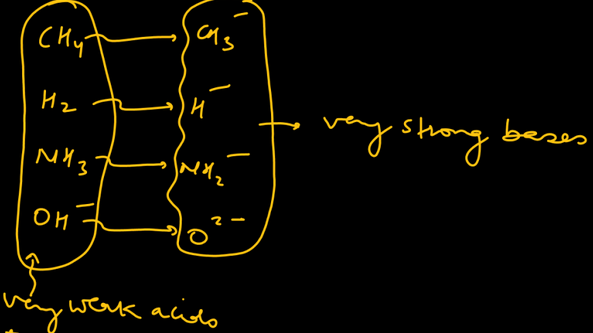 CH4 → CH3⁻
H2 → H⁻
NH3 → NH2⁻
OH⁻ → O²⁻
→ very strong bases
very weak acids